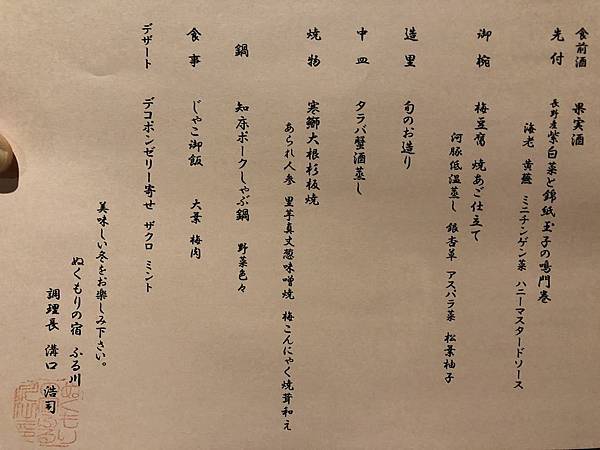 食前酒　果実酒
先付　長野産紫白菜と錦紙玉子の鳴門巻
海老　黄韮　ミニチンゲン菜　ハニーマスタードソース
御椀　梅豆腐　焼あご仕立て
河豚低温蒸し　銀杏草　アスパラ菜　松葉柚子
造里　旬のお造り
中皿　タラバ蟹酒蒸し
焼物　寒鰤大根杉板焼
あられ人参　里芋真丈葱味噌焼　梅こんにゃく焼茸和え
鍋　知床ポークしゃぶ鍋　野菜色々
食事　じゃこ御飯　大葉　梅肉
デザート　デコポンゼリー寄せ　ザクロ　ミント
美味しい冬をお楽しみ下さい。
ぬくもりの宿　ふる川
調理長　溝口　浩司